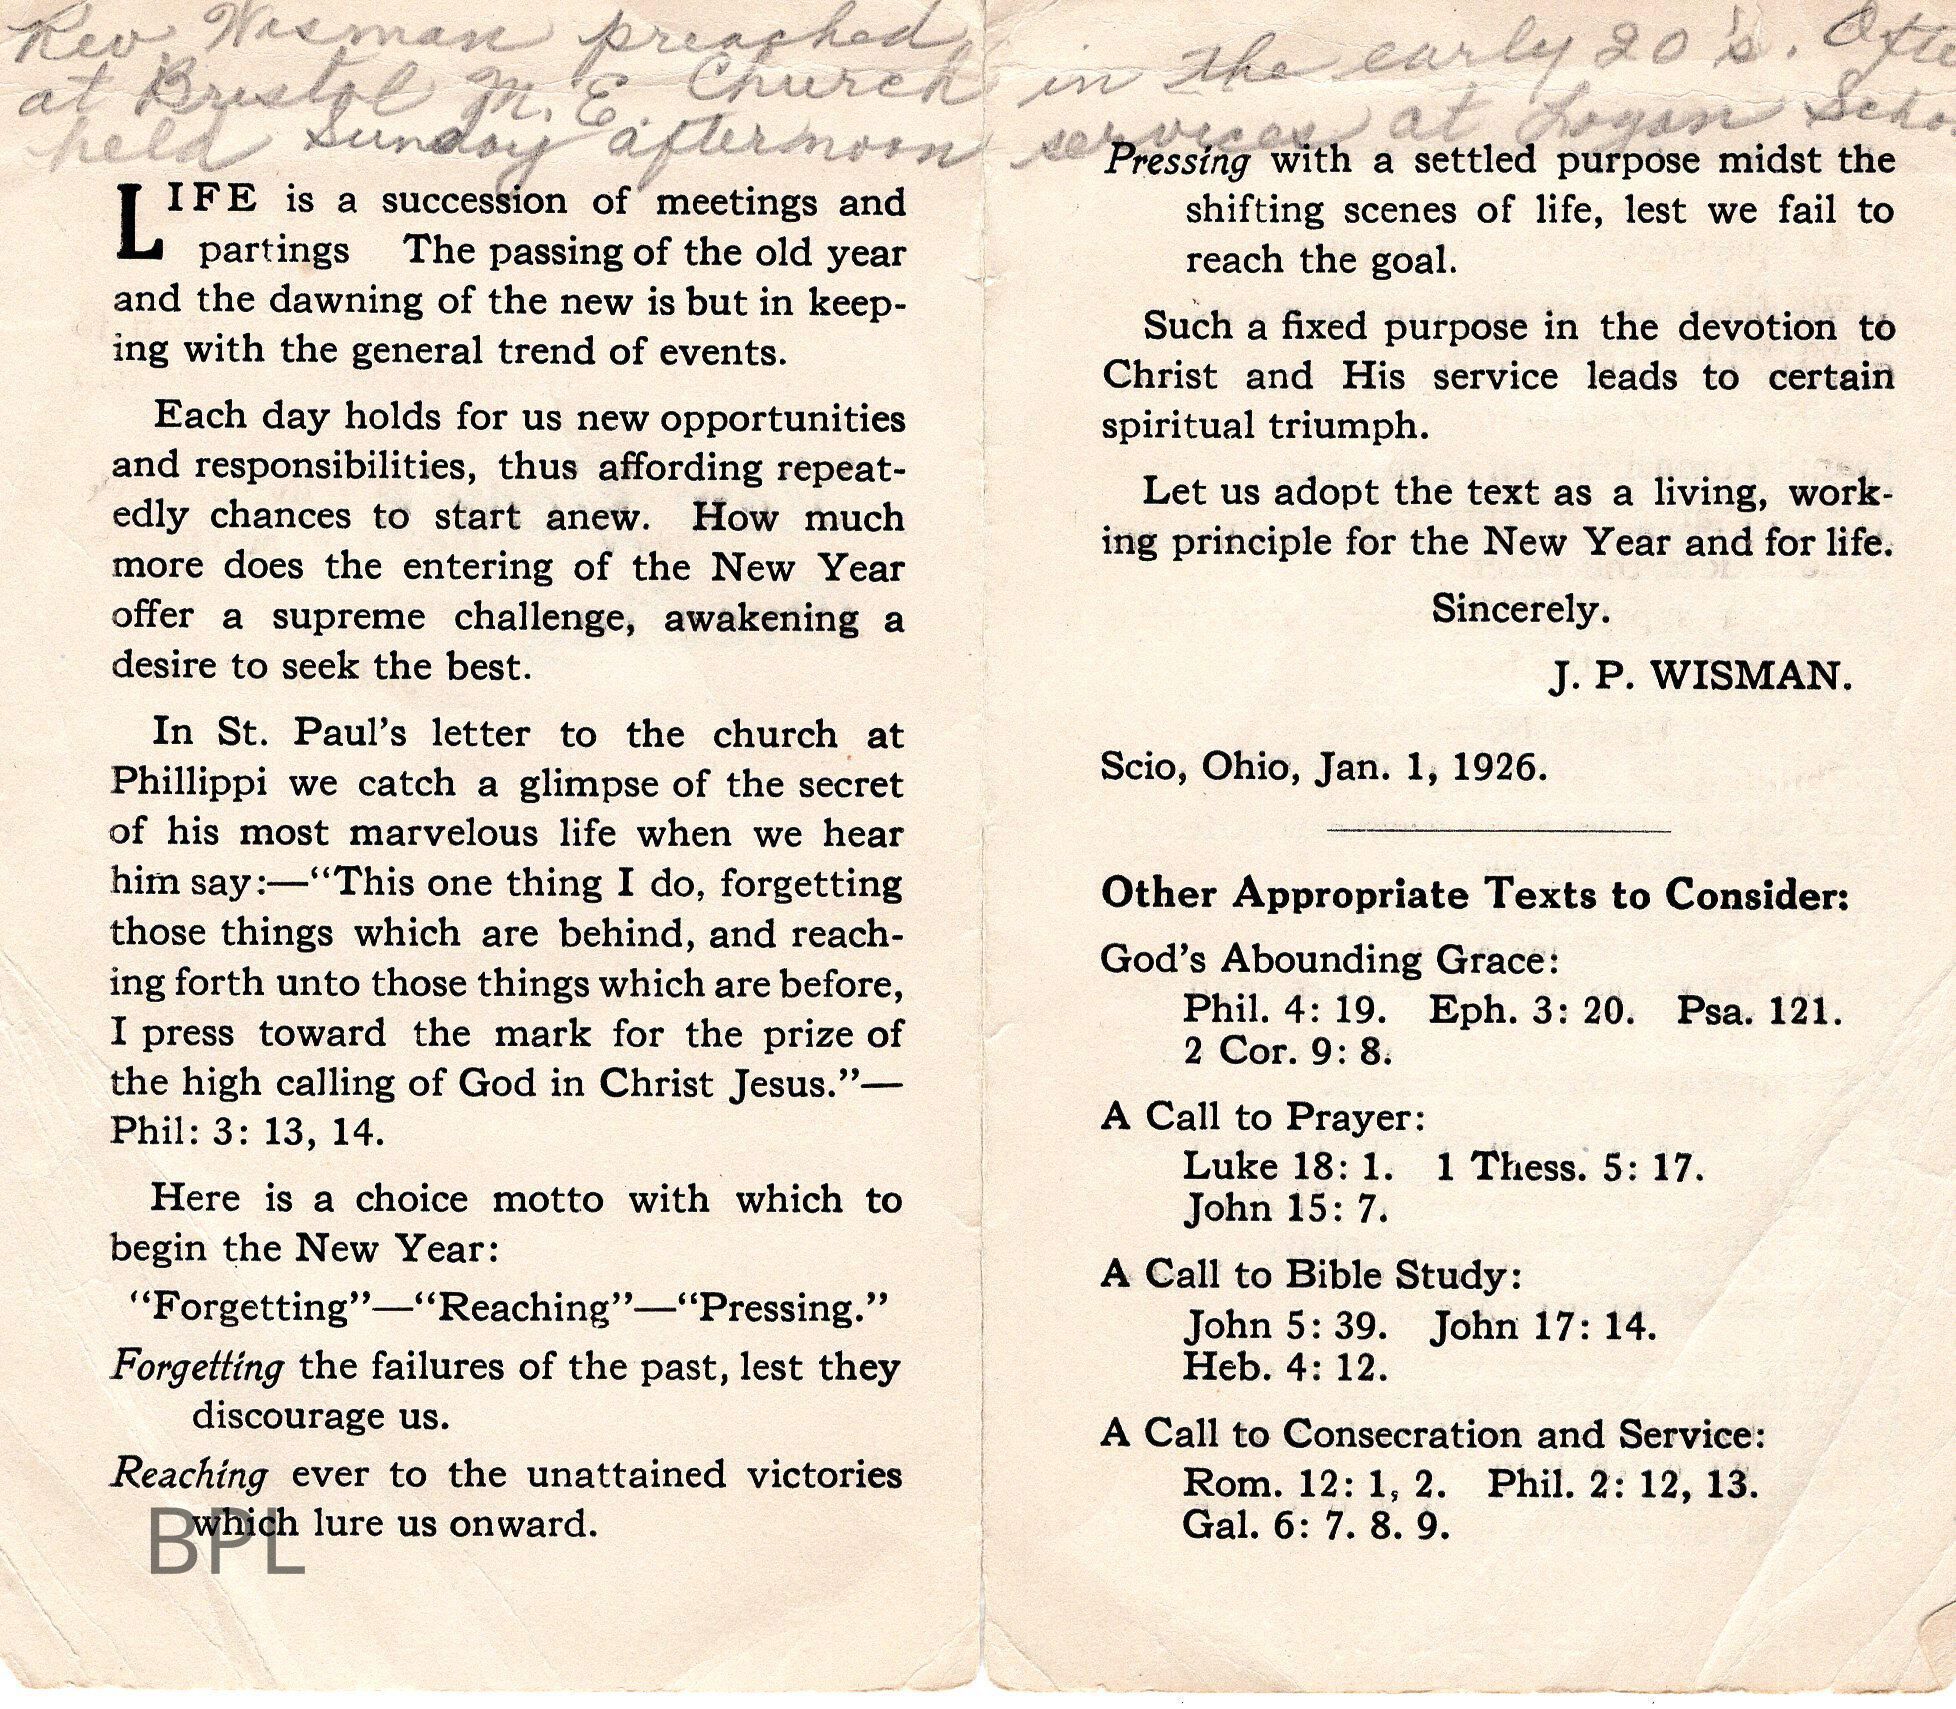 Rev. Wisman preached in the early 20's.
at Bristol M. E. Church services at Logan
held Sunday afternoon
LIFE is a succession of meetings and
partings The passing of the old year
and the dawning of the new is but in keep-
ing with the general trend of events.
Each day holds for us new opportunities
and responsibilities, thus affording repeat-
edly chances to start anew. How much
more does the entering of the New Year
offer a supreme challenge, awakening a
desire to seek the best.
In St. Paul's letter to the church at
Phillippi we catch a glimpse of the secret
of his most marvelous life when we hear
him say:—“This one thing I do, forgetting
those things which are behind, and reach-
ing forth unto those things which are before,
I press toward the mark for the prize of
the high calling of God in Christ Jesus.”—
Phil: 3: 13, 14.
Here is a choice motto with which to
begin the New Year:
“Forgetting”—“Reaching”—“Pressing.”
Forgetting the failures of the past, lest they
discourage us.
Reaching ever to the unattained victories
which lure us onward.
BPL
Pressing with a settled purpose midst the
shifting scenes of life, lest we fail to
reach the goal.
Such a fixed purpose in the devotion to
Christ and His service leads to certain
spiritual triumph.
Let us adopt the text as a living, work-
ing principle for the New Year and for life.
Sincerely.
J. P. WISMAN.
Scio, Ohio, Jan. 1, 1926.
Other Appropriate Texts to Consider:
God's Abounding Grace:
Phil. 4: 19. Eph. 3: 20. Psa. 121.
2 Cor. 9: 8.
A Call to Prayer:
Luke 18: 1. 1 Thess. 5: 17.
John 15: 7.
A Call to Bible Study:
John 5: 39. John 17: 14.
Heb. 4: 12.
A Call to Consecration and Service:
Rom. 12: 1, 2. Phil. 2: 12, 13.
Gal. 6: 7. 8. 9.